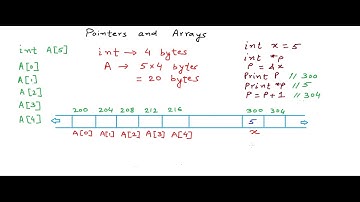 Pointers and Arrays
int A[5]
A[0]
A[1]
A[2]
A[3]
A[4]
int → 4 bytes
A → 5x4 bytes
= 20 bytes
int x = 5
int *p
P = &x
Print P // 300
Print *p // 5
P = P+1 // 304
200 204 208 212 216 300 304
5
A[0] A[1] A[2] A[3] A[4] x